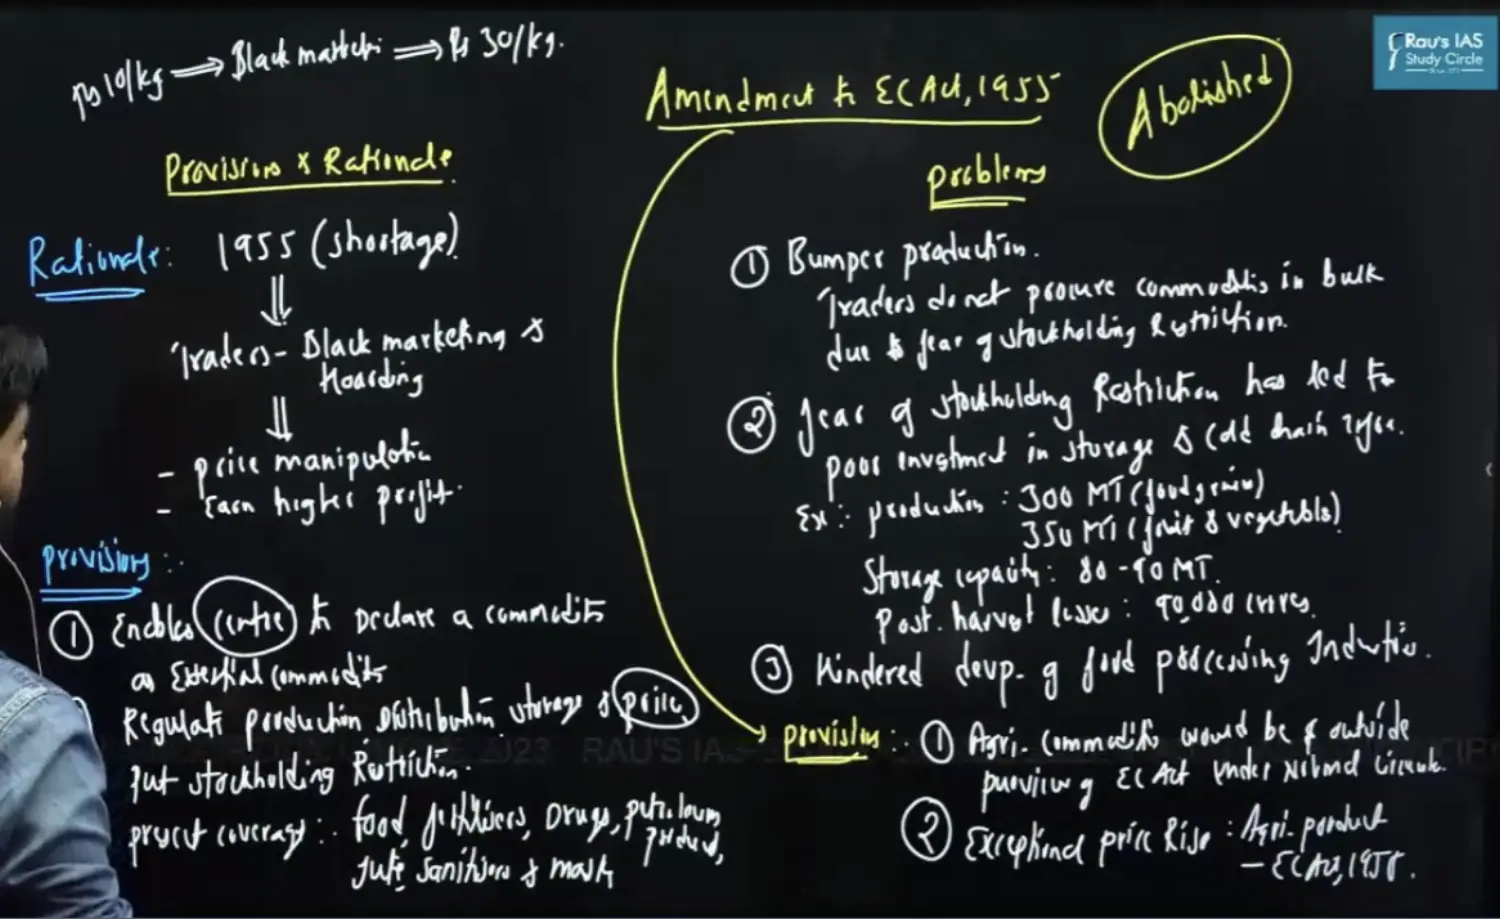 Rs 10/kg ⟹ Black market ⟹ Rs 30/kg.
Rau's IAS
Study Circle
Amendment to EC Act, 1955
Abolished
Provisions & Rationale
Rationale: 1955 (shortage)
Traders - Black marketing &
Hoarding
- price manipulation
- Earn higher profit.
Provisions:
① Enables Centre to Declare a commodity
as Essential commodity
Regulate production, distribution, storage & price,
Put stockholding Restriction.
present coverage: food, fertilisers, Drugs, petroleum
product,
jute, sanitisers & mask
problems
① Bumper production.
Traders do not procure commodities in bulk
due to fear of stockholding Restriction.
② fear of stockholding Restriction has led to
poor investment in storage & cold chain
Ex: production: 300 MT (foodgrains)
350 MT (fruit & vegetables)
Storage capacity: 80-90 MT.
Post. harvest losses: 90,000 crores.
③ Hindered devp. of food processing Industries.
provisions: ① Agri- commodities would be outside
purview of EC Act under Normal Circum.
② Exceptional price Rise: Agri-product
- EC Act, 1955.
2023 RAU'S IA